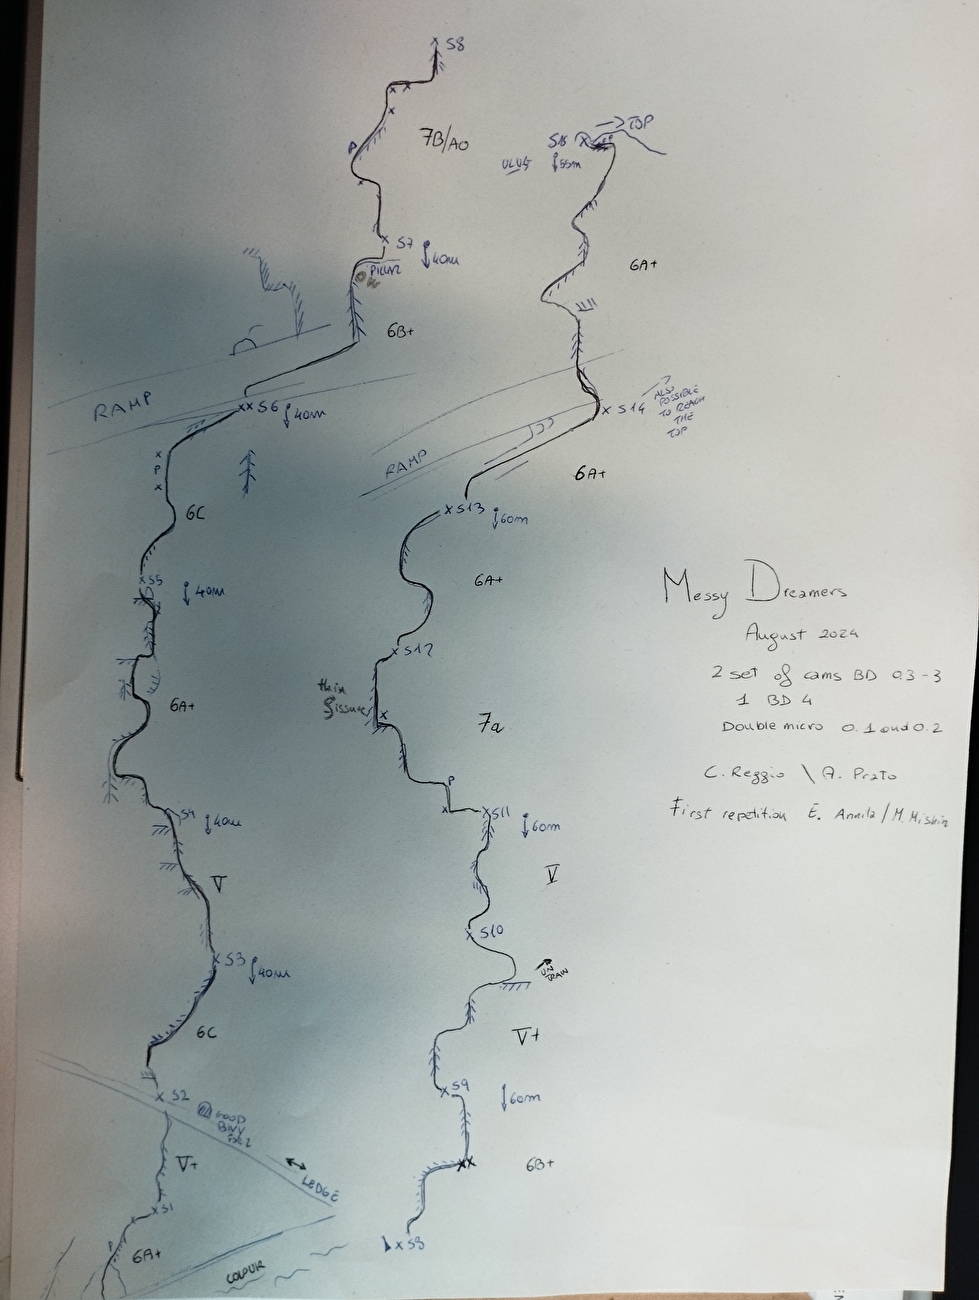 S8
7B/A0
P
S7
40m
PILLAR
6B+
RAMP
S6
40m
P
6C
S5
40m
6A+
S4
40m
V
S3
40m
6C
S2
GOOD
BIVY
LEDGE
V+
S1
P
6A+
COLOUR
TOP
55m
6A+
S14
ALSO
POSSIBLE
TO REACH
THE
TOP
RAMP
6A+
S13
60m
6A+
S12
thin
fissure
7a
P
S11
60m
V
S10
V+
S9
60m
6B+
S8
Messy Dreamers
August 2024
2 set of cams BD 0.3-3
1 BD 4
Double micro 0.1 and 0.2
C. Reggio \ A. Prato
First repetition